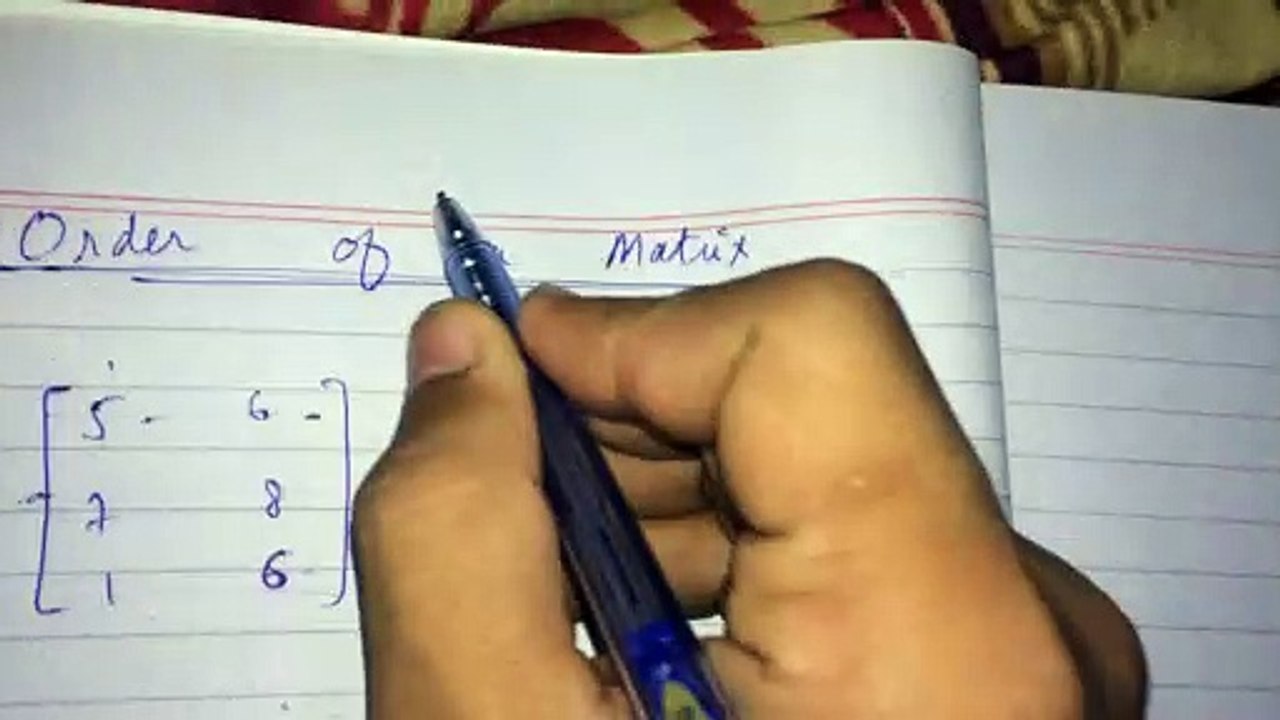 Order of a Matrix
5 6
7 8
1 6